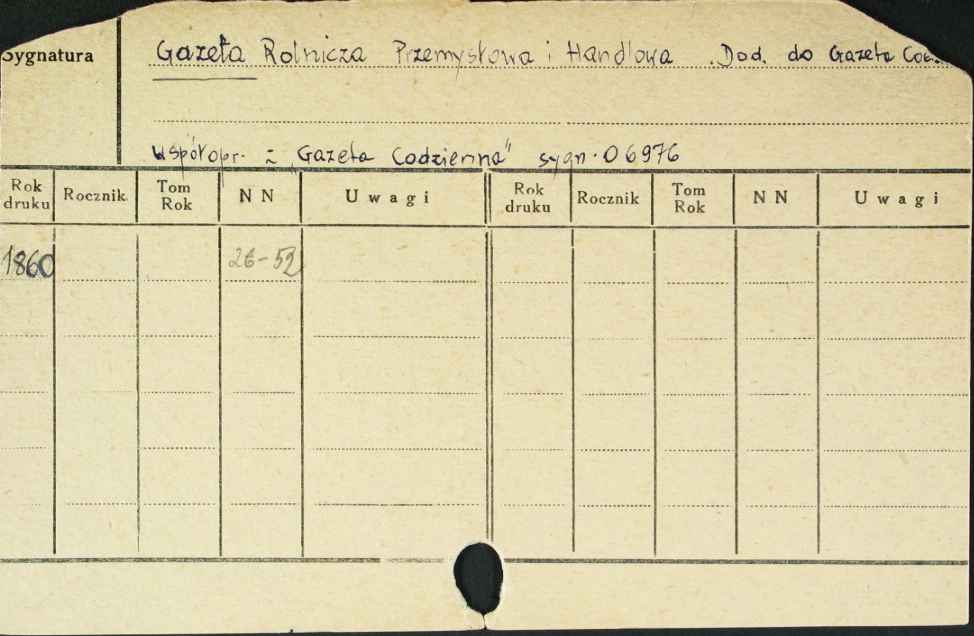 Sygnatura
Gazeta Rolnicza Przemysłowa i Handlowa Dod. do Gazeta
współopr. z „Gazeta Codzienna" sygn. 06976
Rok druku Rocznik Tom Rok NN Uwagi Rok druku Rocznik Tom Rok NN Uwagi
1860 26-52